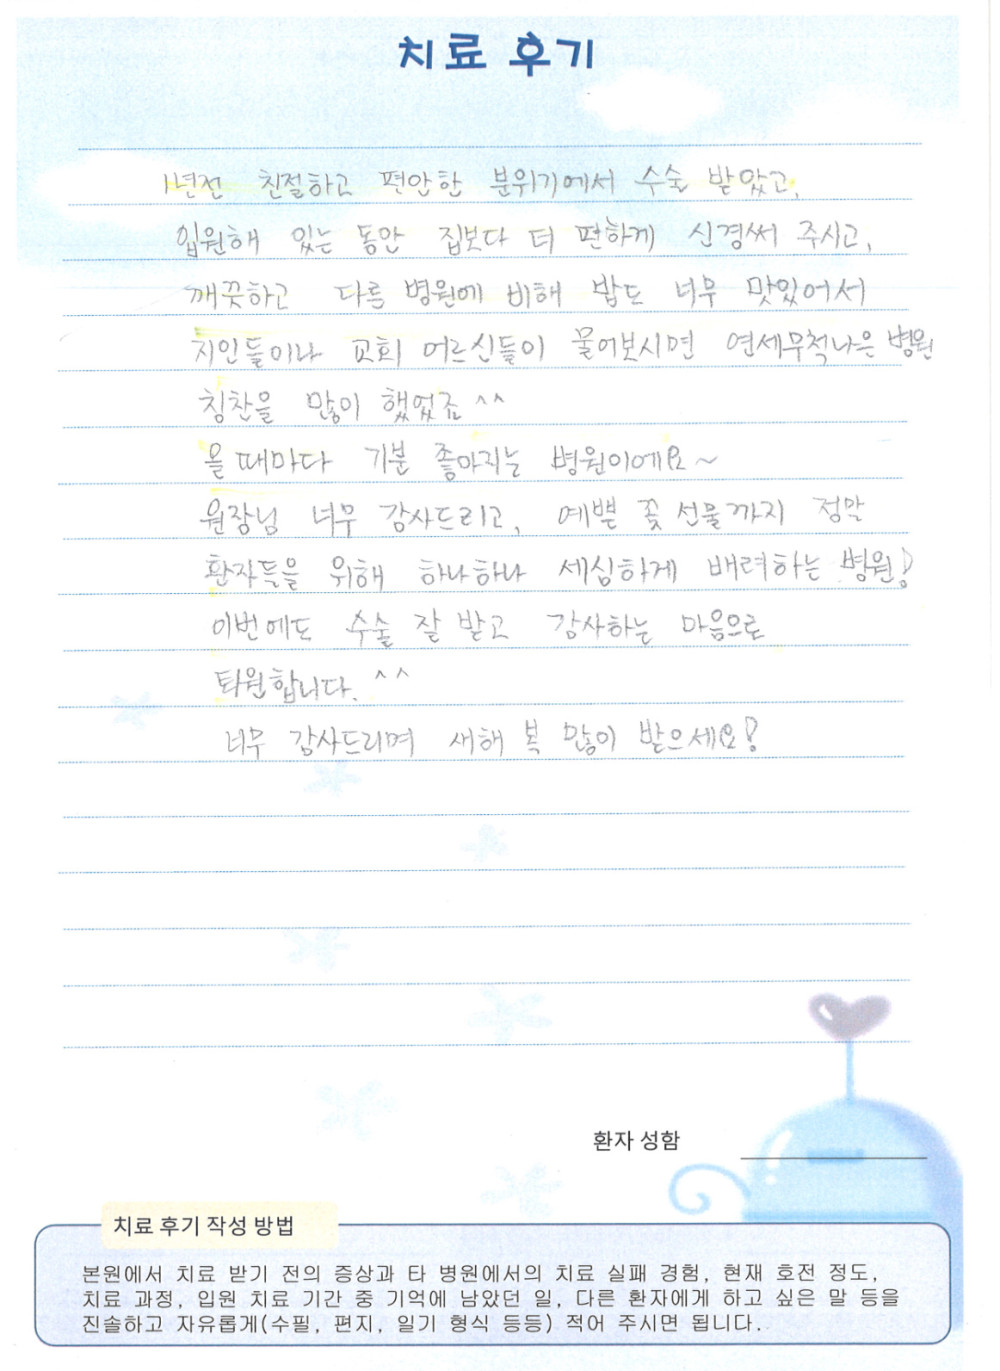 치료 후기
1년전 친절하고 편안한 분위기에서 수술 받았고,
입원해 있는 동안 집보다 더 편하게 신경써 주시고,
깨끗하고 다른 병원에 비해 밥도 너무 맛있어서
지인들이나 교회 어르신들이 물어보시면 연세무척나은 병원
칭찬을 많이 했었죠 ^^
올 때마다 기분 좋아지는 병원이에요~
원장님 너무 감사드리고, 예쁜 꽃 선물까지 정말
환자들을 위해 하나하나 세심하게 배려하는 병원!
이번에도 수술 잘 받고 감사하는 마음으로
퇴원합니다. ^^
너무 감사드리며 새해 복 많이 받으세요!
환자 성함
치료 후기 작성 방법
본원에서 치료 받기 전의 증상과 타 병원에서의 치료 실패 경험, 현재 호전 정도,
치료 과정, 입원 치료 기간 중 기억에 남았던 일, 다른 환자에게 하고 싶은 말 등을
진솔하고 자유롭게(수필, 편지, 일기 형식 등등) 적어 주시면 됩니다.